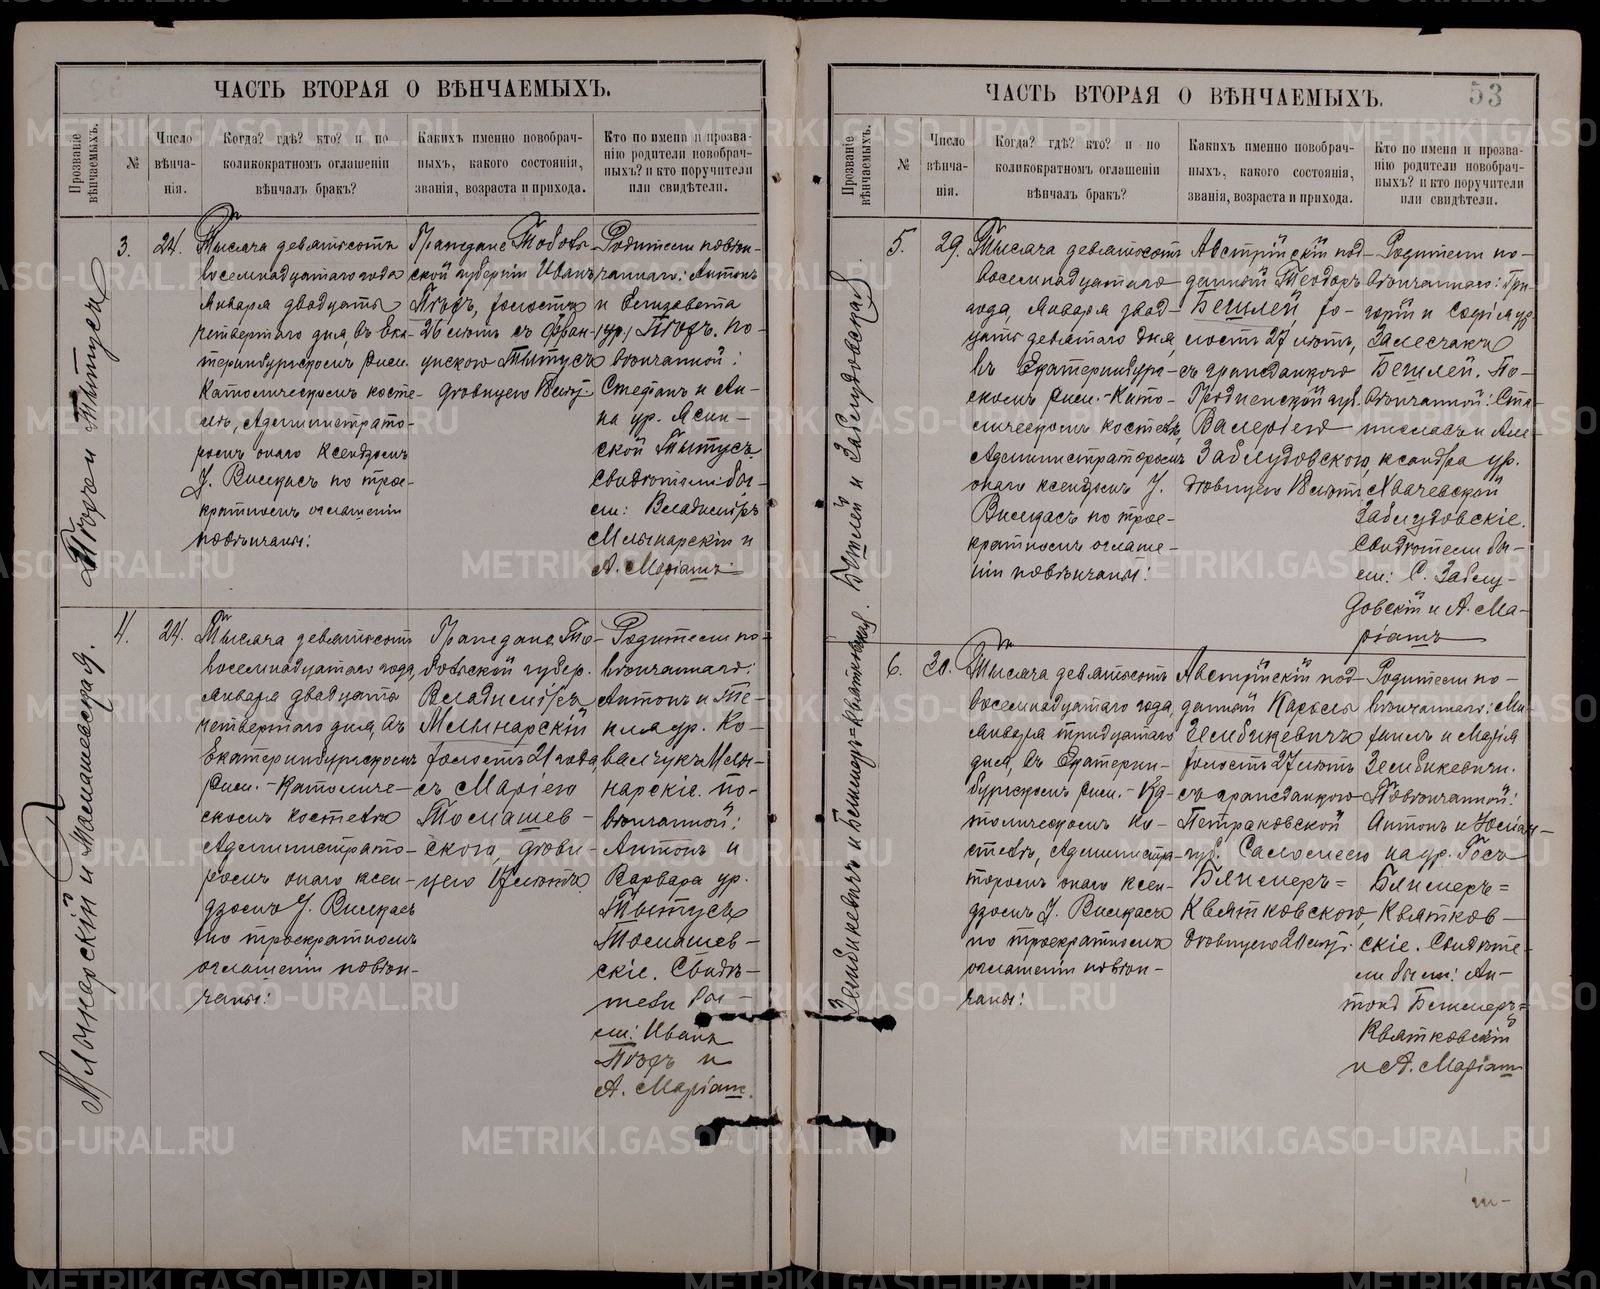 ЧАСТЬ ВТОРАЯ О ВѢНЧАЕМЫХЪ.
Прозваніе вѣнчаемыхъ.
№
Число
вѣнча-
нія.
Когда? гдѣ? кто? и по
коликократномъ оглашеніи
вѣнчалъ бракъ?
Какихъ именно новобрач-
ныхъ, какого состоянія,
званія, возраста и прихода.
Кто по имени и прозва-
нію родители новобрач-
ныхъ? и кто поручители
или свидѣтели.
3.
24.
Тысяча девятьсотъ
восемнадцатаго года
Января двадцать
четвертаго дня, въ Ека-
теринбургскомъ Рим.
Католическомъ косте-
лѣ, Администрато-
ромъ онаго Ксендзомъ
J. Вилкасъ по трое-
кратномъ оглашеніи
повѣнчаны:
Граждане
ской губерніи Иванъ
холостъ
26 лѣтъ съ Фран-
цискою Тытусъ
дѣвицею
Родители повѣн-
чаннаго: Антонъ
и Елизавета
По-
вѣнчанной:
Стефанъ и Ан-
на ур. Ясин-
ской Тытусъ
Свидѣтели бы-
ли: Владиміръ
Млынарскій и
А. Маріамъ
4.
24.
Млынарскій и Томашевская.
Тысяча девятьсотъ
восемнадцатаго года,
Января двадцать
четвертаго дня, въ
Екатеринбургскомъ
Рим.-Католиче-
скомъ костелѣ
Администрато-
ромъ онаго Ксен-
дзомъ J. Вилкасъ
по троекратномъ
оглашеніи повѣн-
чаны:
Граждане
губер.
Владиміръ
Млынарскій
холостъ 21 года,
съ Маріею
Томашев-
скою, дѣви-
цею 17 лѣтъ
Родители по-
вѣнчаннаго:
Антонъ и Те-
кля ур. Ко-
вальчукъ Млы-
нарскіе. По-
вѣнчанной:
Антонъ и
Варвара ур.
Тытусъ
Томашев-
скіе. Свидѣ-
тели бы-
ли: Иванъ
и
А. Маріамъ.
ЧАСТЬ ВТОРАЯ О ВѢНЧАЕМЫХЪ.
53
Прозваніе вѣнчаемыхъ.
№
Число
вѣнча-
нія.
Когда? гдѣ? кто? и по
коликократномъ оглашеніи
вѣнчалъ бракъ?
Какихъ именно новобрач-
ныхъ, какого состоянія,
званія, возраста и прихода.
Кто по имени и прозва-
нію родители новобрач-
ныхъ? и кто поручители
или свидѣтели.
5.
29.
и Заблудовская
Тысяча девятьсотъ
восемнадцатаго
года, Января двад-
цать девятаго дня,
въ Екатеринбург-
скомъ Рим.-Като-
лическомъ костелѣ,
Администраторомъ
онаго ксендзомъ J.
Вилкасъ по трое-
кратномъ оглаше-
ніи повѣнчаны:
Австрійскій под-
данный Теодоръ
хо-
лостъ 27 лѣтъ,
съ гражданкою
Гродненской губ.
Валеріею
Заблудовскою,
дѣвицею 18 лѣтъ
Родители по-
вѣнчаннаго: Гри-
горій и Софія ур.
По-
вѣнчанной: Ста-
ниславъ и Але-
ксандра ур.
Заблудовскіе.
Свидѣтели бы-
ли: С. Заблу-
довскій и А. Ма-
ріамъ
6.
30.
Зембикевичъ и
Тысяча девятьсотъ
восемнадцатаго года,
Января тридцатаго
дня, въ Екатерин-
бургскомъ Рим.-Ка-
толическомъ ко-
стелѣ, Администра-
торомъ онаго Ксен-
дзомъ J. Вилкасъ
по троекратномъ
оглашеніи повѣн-
чаны:
Австрійскій под-
данный Карлъ
Зембикевичъ
холостъ 27 лѣтъ
съ гражданкою
Петраковской
губ. Саломеею
Квятковскою,
дѣвицею
Родители по-
вѣнчаннаго: Ми-
хаилъ и Марія
Зембикевичи.
Повѣнчанной:
Антонъ и Юліан-
на ур. Госъ
Квятков-
скіе. Свидѣте-
ли были: Ан-
тонъ
Квятковскій
и А. Маріамъ
METRIKI.GASO-URAL.RU